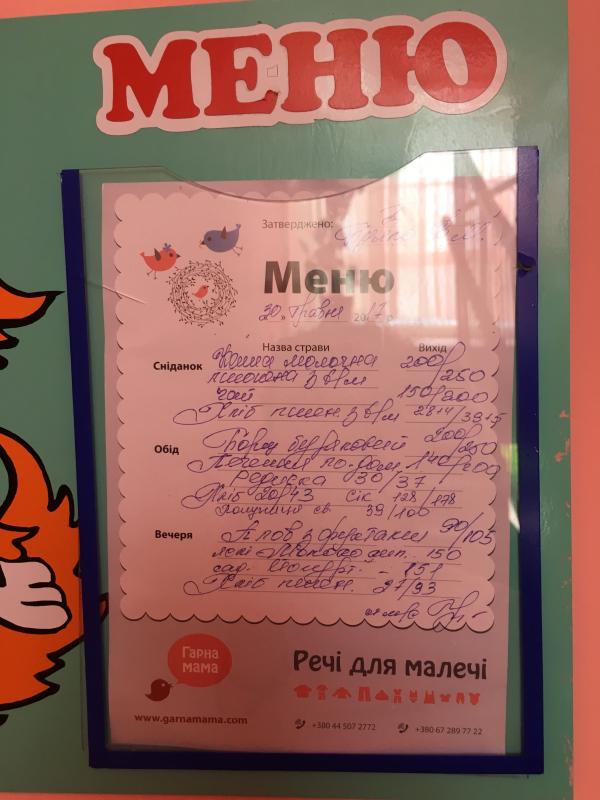 МЕНЮ
Затверджено:
Меню
30. травня 2017 р.
Назва страви
Вихід
Сніданок
Каша молочна 200/
пшоняна з в/м /250
чай 150/200
Хліб пшен. з в/м
Обід
Борщ буряковий 200/250
Печення по-дом. 140/200
Редиска 30/37
Хліб 20/43 Сік 128/178
Полуниця св. 39/100
Вечеря
Плов з фруктами 90/105
150
Йогурт
Хліб пшен.
Гарна
мама
Речі для малечі
www.garnamama.com
+380 44 507 2772
+380 67 289 77 22